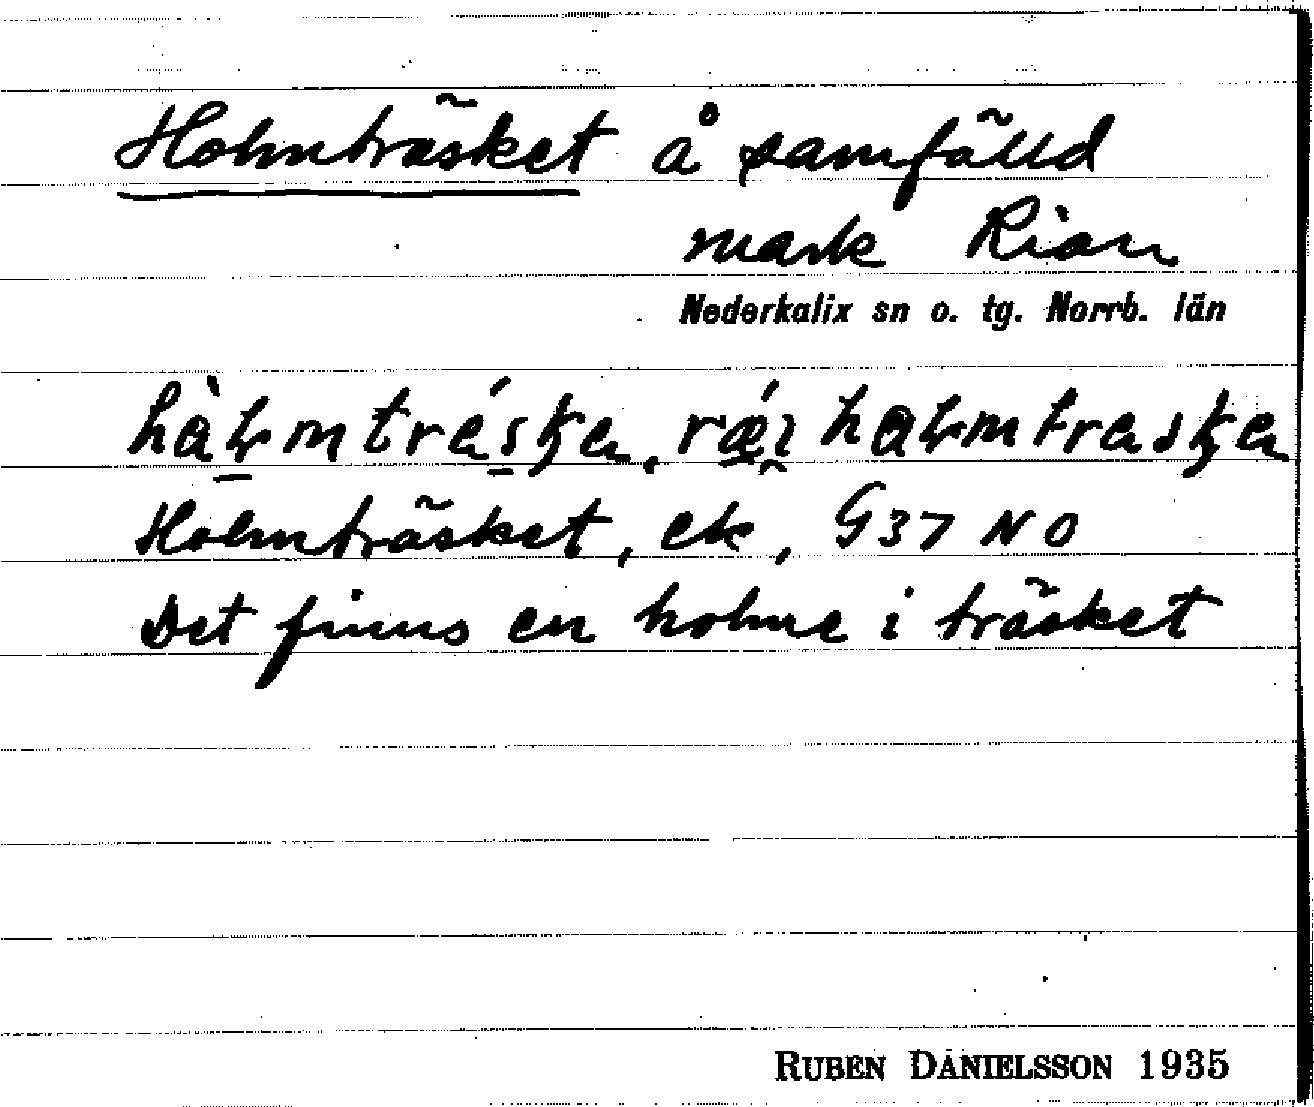 Holmträsket å samfälld
mark Rian
Nederkalix sn o. tg. Norrb. län
Holmträsket, ek, G37 NO
Det finns en holme i träsket
RUBEN DANIELSSON 1935